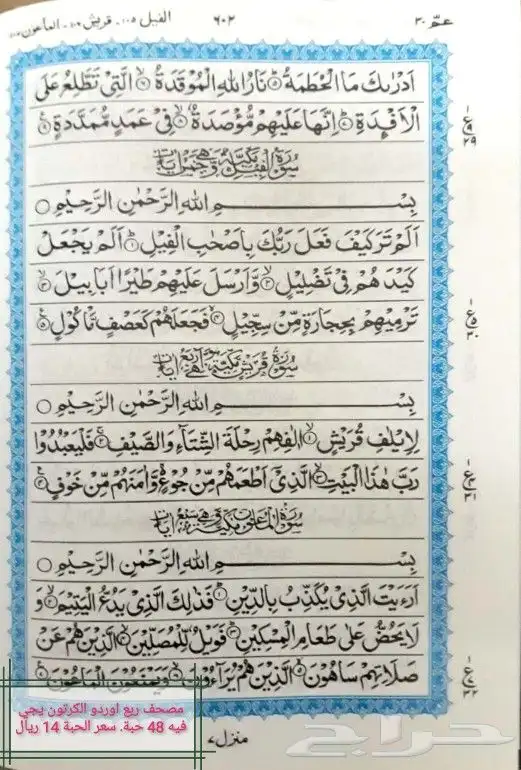 عمّ ٣٠
٦٠٢
الفيل ١٠٥- قريش ١٠٦- الماعون ١٠٧
اَدْرٰىكَ مَا الْحُطَمَةُ ۝٥ نَارُ اللّٰهِ الْمُوْقَدَةُ ۝٦ الَّتِيْ تَطَّلِعُ عَلَى
الْاَفْـِٕدَةِ ۝٧ اِنَّهَا عَلَيْهِمْ مُّؤْصَدَةٌ ۝٨ فِيْ عَمَدٍ مُّمَدَّدَةٍ ۝٩
ع ٩ ٢٩
سُوْرَةُ الْفِيْلِ مَكِّيَّةٌ وَّهِيَ خَمْسُ اٰيَاتٍ
بِسْـــــــمِ اللّٰهِ الرَّحْمٰنِ الرَّحِيْمِ ○
اَلَمْ تَرَ كَيْفَ فَعَلَ رَبُّكَ بِاَصْحٰبِ الْفِيْلِ ۝١ اَلَمْ يَجْعَلْ
كَيْدَهُمْ فِيْ تَضْلِيْلٍ ۝٢ وَّاَرْسَلَ عَلَيْهِمْ طَيْرًا اَبَابِيْلَ ۝٣
تَرْمِيْهِمْ بِحِجَارَةٍ مِّنْ سِجِّيْلٍ ۝٤ فَجَعَلَهُمْ كَعَصْفٍ مَّاْكُوْلٍ ۝٥
ع ٥ ٣٠
سُوْرَةُ قُرَيْشٍ مَكِّيَّةٌ وَّهِيَ اَرْبَعُ اٰيَاتٍ
بِسْـــــــمِ اللّٰهِ الرَّحْمٰنِ الرَّحِيْمِ ○
لِاِيْلٰفِ قُرَيْشٍ ۝١ اٖلٰفِهِمْ رِحْلَةَ الشِّتَآءِ وَالصَّيْفِ ۝٢ فَلْيَعْبُدُوْا
رَبَّ هٰذَا الْبَيْتِ ۝٣ الَّذِيْٓ اَطْعَمَهُمْ مِّنْ جُوْعٍ وَّاٰمَنَهُمْ مِّنْ خَوْفٍ ۝٤
ع ٤ ٣١
سُوْرَةُ الْمَاعُوْنِ مَكِّيَّةٌ وَّهِيَ سَبْعُ اٰيَاتٍ
بِسْـــــــمِ اللّٰهِ الرَّحْمٰنِ الرَّحِيْمِ ○
اَرَءَيْتَ الَّذِيْ يُكَذِّبُ بِالدِّيْنِ ۝١ فَذٰلِكَ الَّذِيْ يَدُعُّ الْيَتِيْمَ ۝٢ وَ
لَا يَحُضُّ عَلٰى طَعَامِ الْمِسْكِيْنِ ۝٣ فَوَيْلٌ لِّلْمُصَلِّيْنَ ۝٤ الَّذِيْنَ هُمْ عَنْ
صَلَاتِهِمْ سَاهُوْنَ ۝٥ الَّذِيْنَ هُمْ يُرَآءُوْنَ ۝٦ وَيَمْنَعُوْنَ الْمَاعُوْنَ ۝٧
ع ٧ ٣٢
مصحف ربع اوردو الكرتون يجي
فيه 48 حبة. سعر الحبة 14 ريال
منزل ٧
حراج